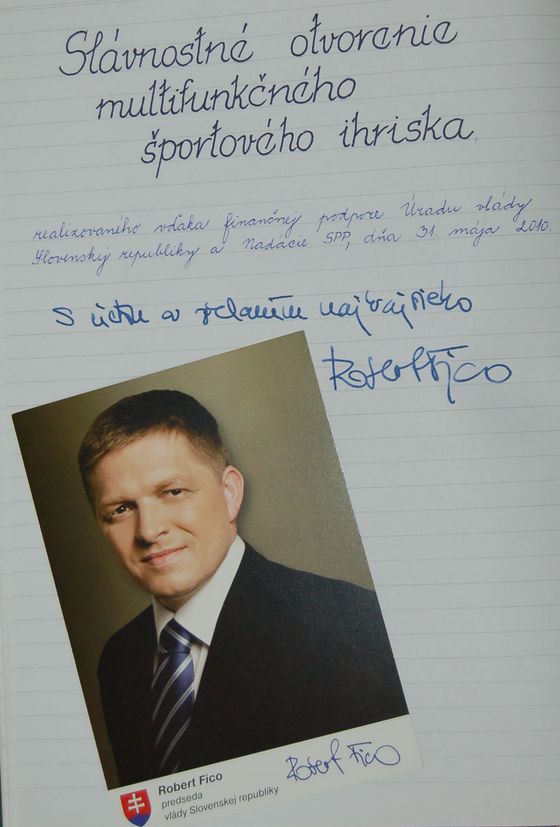 Slávnostné otvorenie
multifunkčného
športového ihriska
realizovaného vďaka finančnej podpore Úradu vlády
Slovenskej republiky a Nadácie SPP, dňa 31. mája 2010.
S úctou a želaním najkrajšieho
Robert Fico
Robert Fico
Robert Fico
predseda
vlády Slovenskej republiky